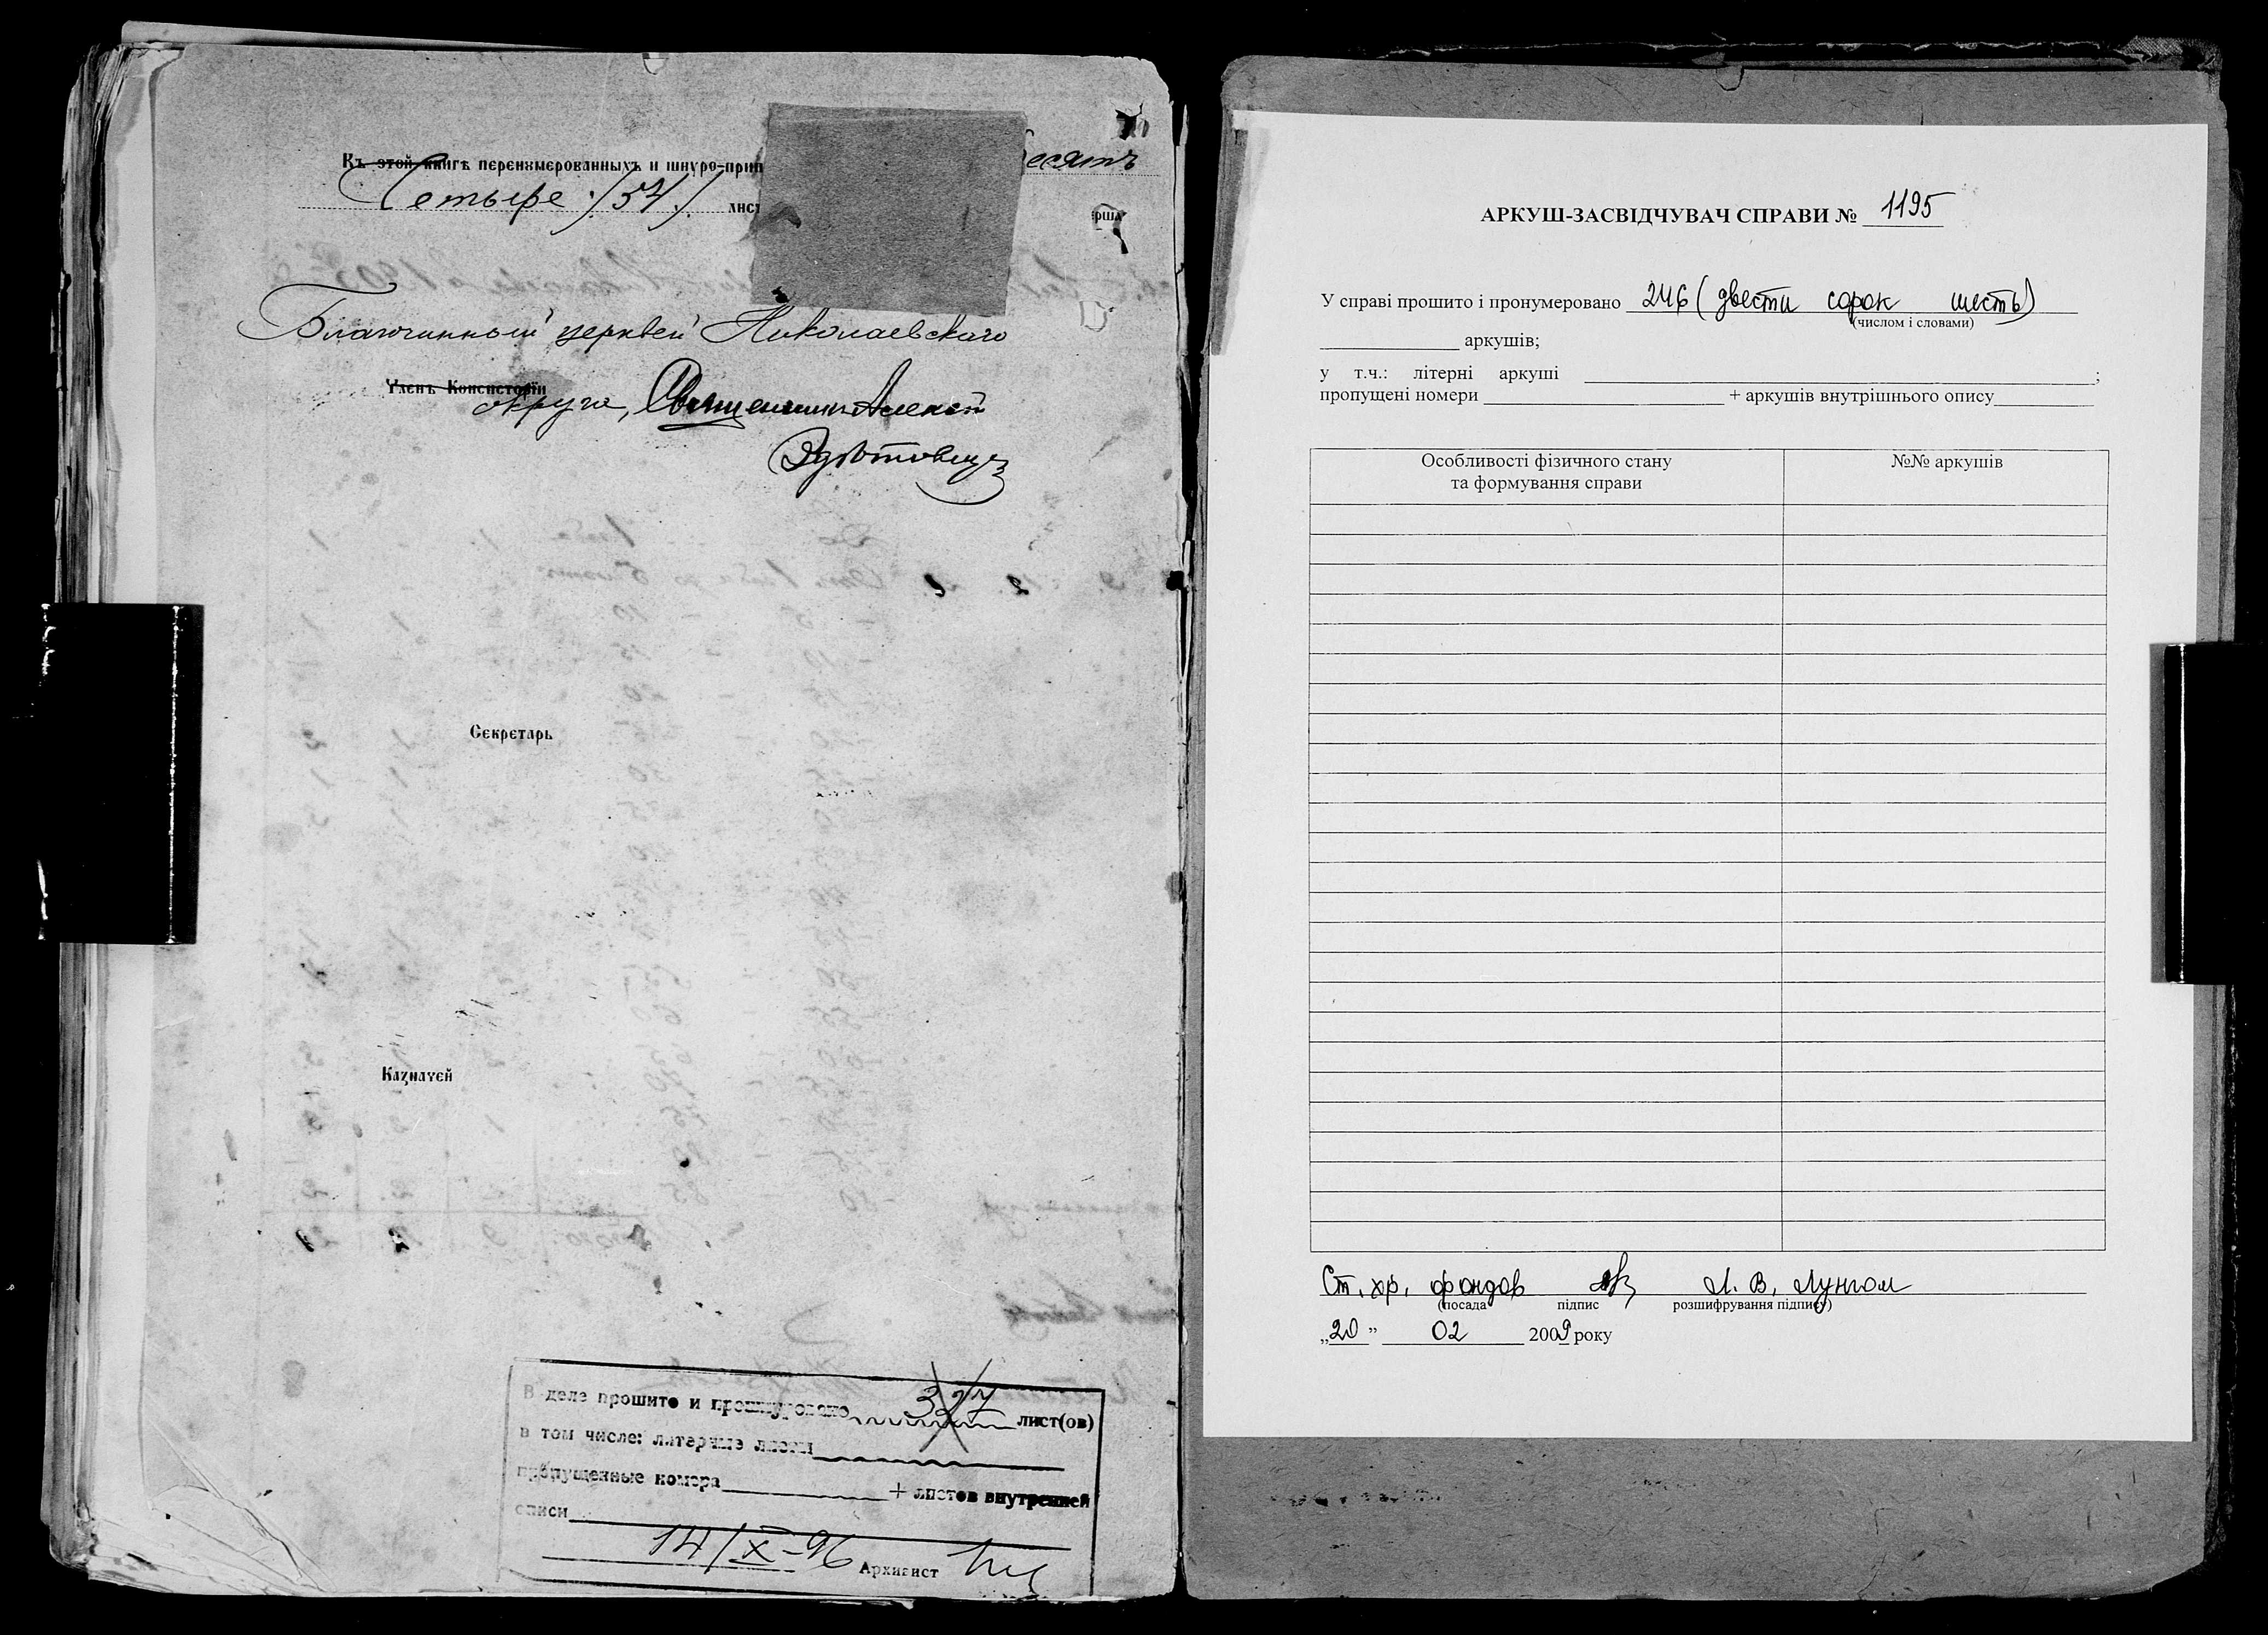 Къ этой книгѣ перенумерованныхъ и шнуро-прип
есятъ
Четыре /54/ лист
рша
Благочинный церквей Николаевскаго
Членъ Консисторіи
округа, Священникъ Алексѣй
Секретарь
Казначей
В деле прошито и прошнуровано 327 лист(ов)
в том числе: литерные листы
пропущенные номера + листов внутренней
описи
14/X-96 Архивист
АРКУШ-ЗАСВІДЧУВАЧ СПРАВИ № 1195
У справі прошито і пронумеровано 246 (двести сорок шесть)
(числом і словами)
аркушів;
у т.ч.: літерні аркуші ;
пропущені номери + аркушів внутрішнього опису
Особливості фізичного стану №№ аркушів
та формування справи
Ст. хр. фондов Л. В. Лунгол
(посада підпис розшифрування підпису)
„20” 02 2009 року